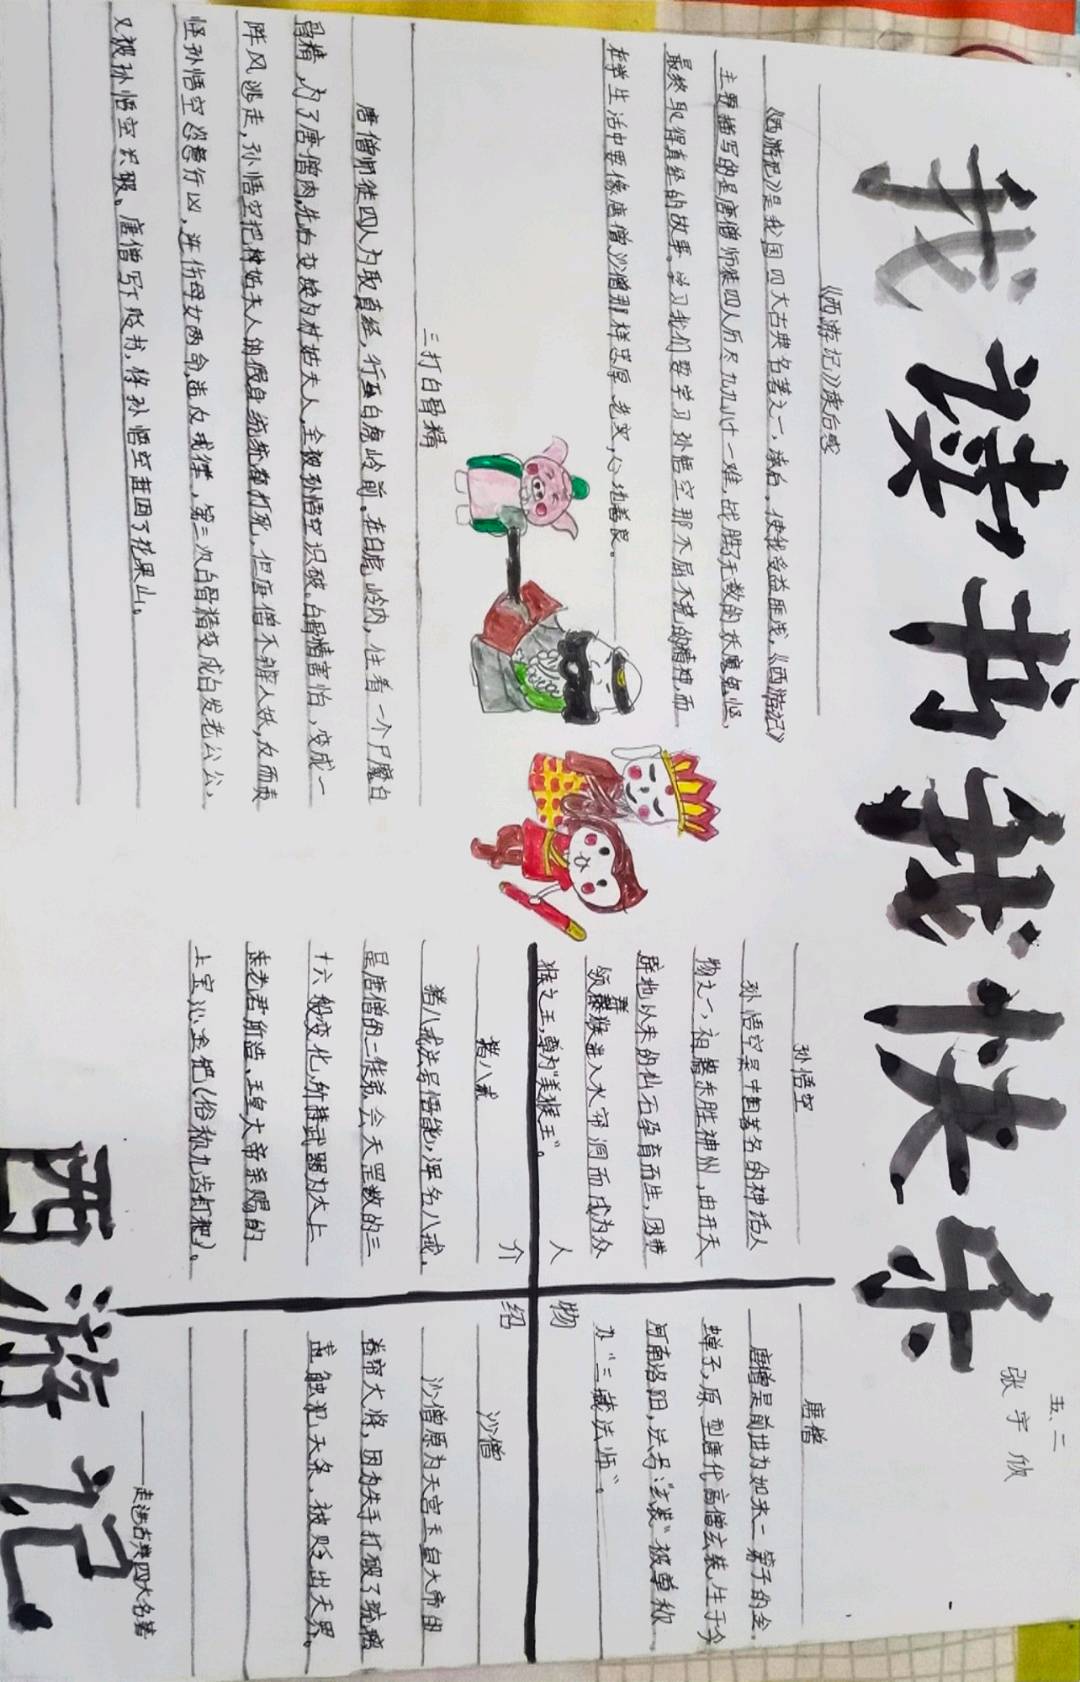 我读书我快乐
五、二
张宇欣
《西游记》读后感
《西游记》是我国四大古典名著之一，读后，使我受益匪浅，《西游记》
主要描写的是唐僧师徒四人历尽九九八十一难，战胜了无数的妖魔鬼怪，
最终取得真经的故事。学习我们要学习孙悟空那不屈不挠的精神，而
在学生活中要像唐僧沙僧那样忠厚老实，心地善良。
三打白骨精
唐僧师徒四人为取真经，行至白虎岭前。在白虎岭内，住着一个尸魔白
骨精，为了唐僧肉，先右变换为村姑夫人，全被孙悟空识破。白骨精害怕，变成一
阵风逃走，孙悟空把村姑夫人的假身统统都打死，但唐僧不辨人妖，反而责
怪孙悟空恣意行凶，连伤母女两命，违反戒律，第三次白骨精变成白发老公公，
又被孙悟空识破。唐僧写下贬书，将孙悟空赶回了花果山。
人物介绍
孙悟空
孙悟空是中国著名的神话人
物之一，祖籍东胜神州，由开天
辟地以来的仙石孕育而生，因带
领群猴进入水帘洞而成为众
猴之王，尊为“美猴王”。
唐僧
唐僧是前世为如来二第子的金
蝉子，原型唐代高僧玄装，生于今
河南洛阳，法号“玄装”被尊称
为“三藏法师”。
猪八戒
猪八戒法号悟能，浑名八戒。
是唐僧的二徒弟，会天罡数的三
十六般变化，所持武器为太上
老君所造、玉皇大帝亲赐的
上宝沁金耙（俗称九齿钉耙）。
沙僧
沙僧原为天宫玉皇大帝的
卷帘大将，因为失手打破了琉璃
盏，触犯天条，被贬出天界。
西游记
——走进古典四大名著